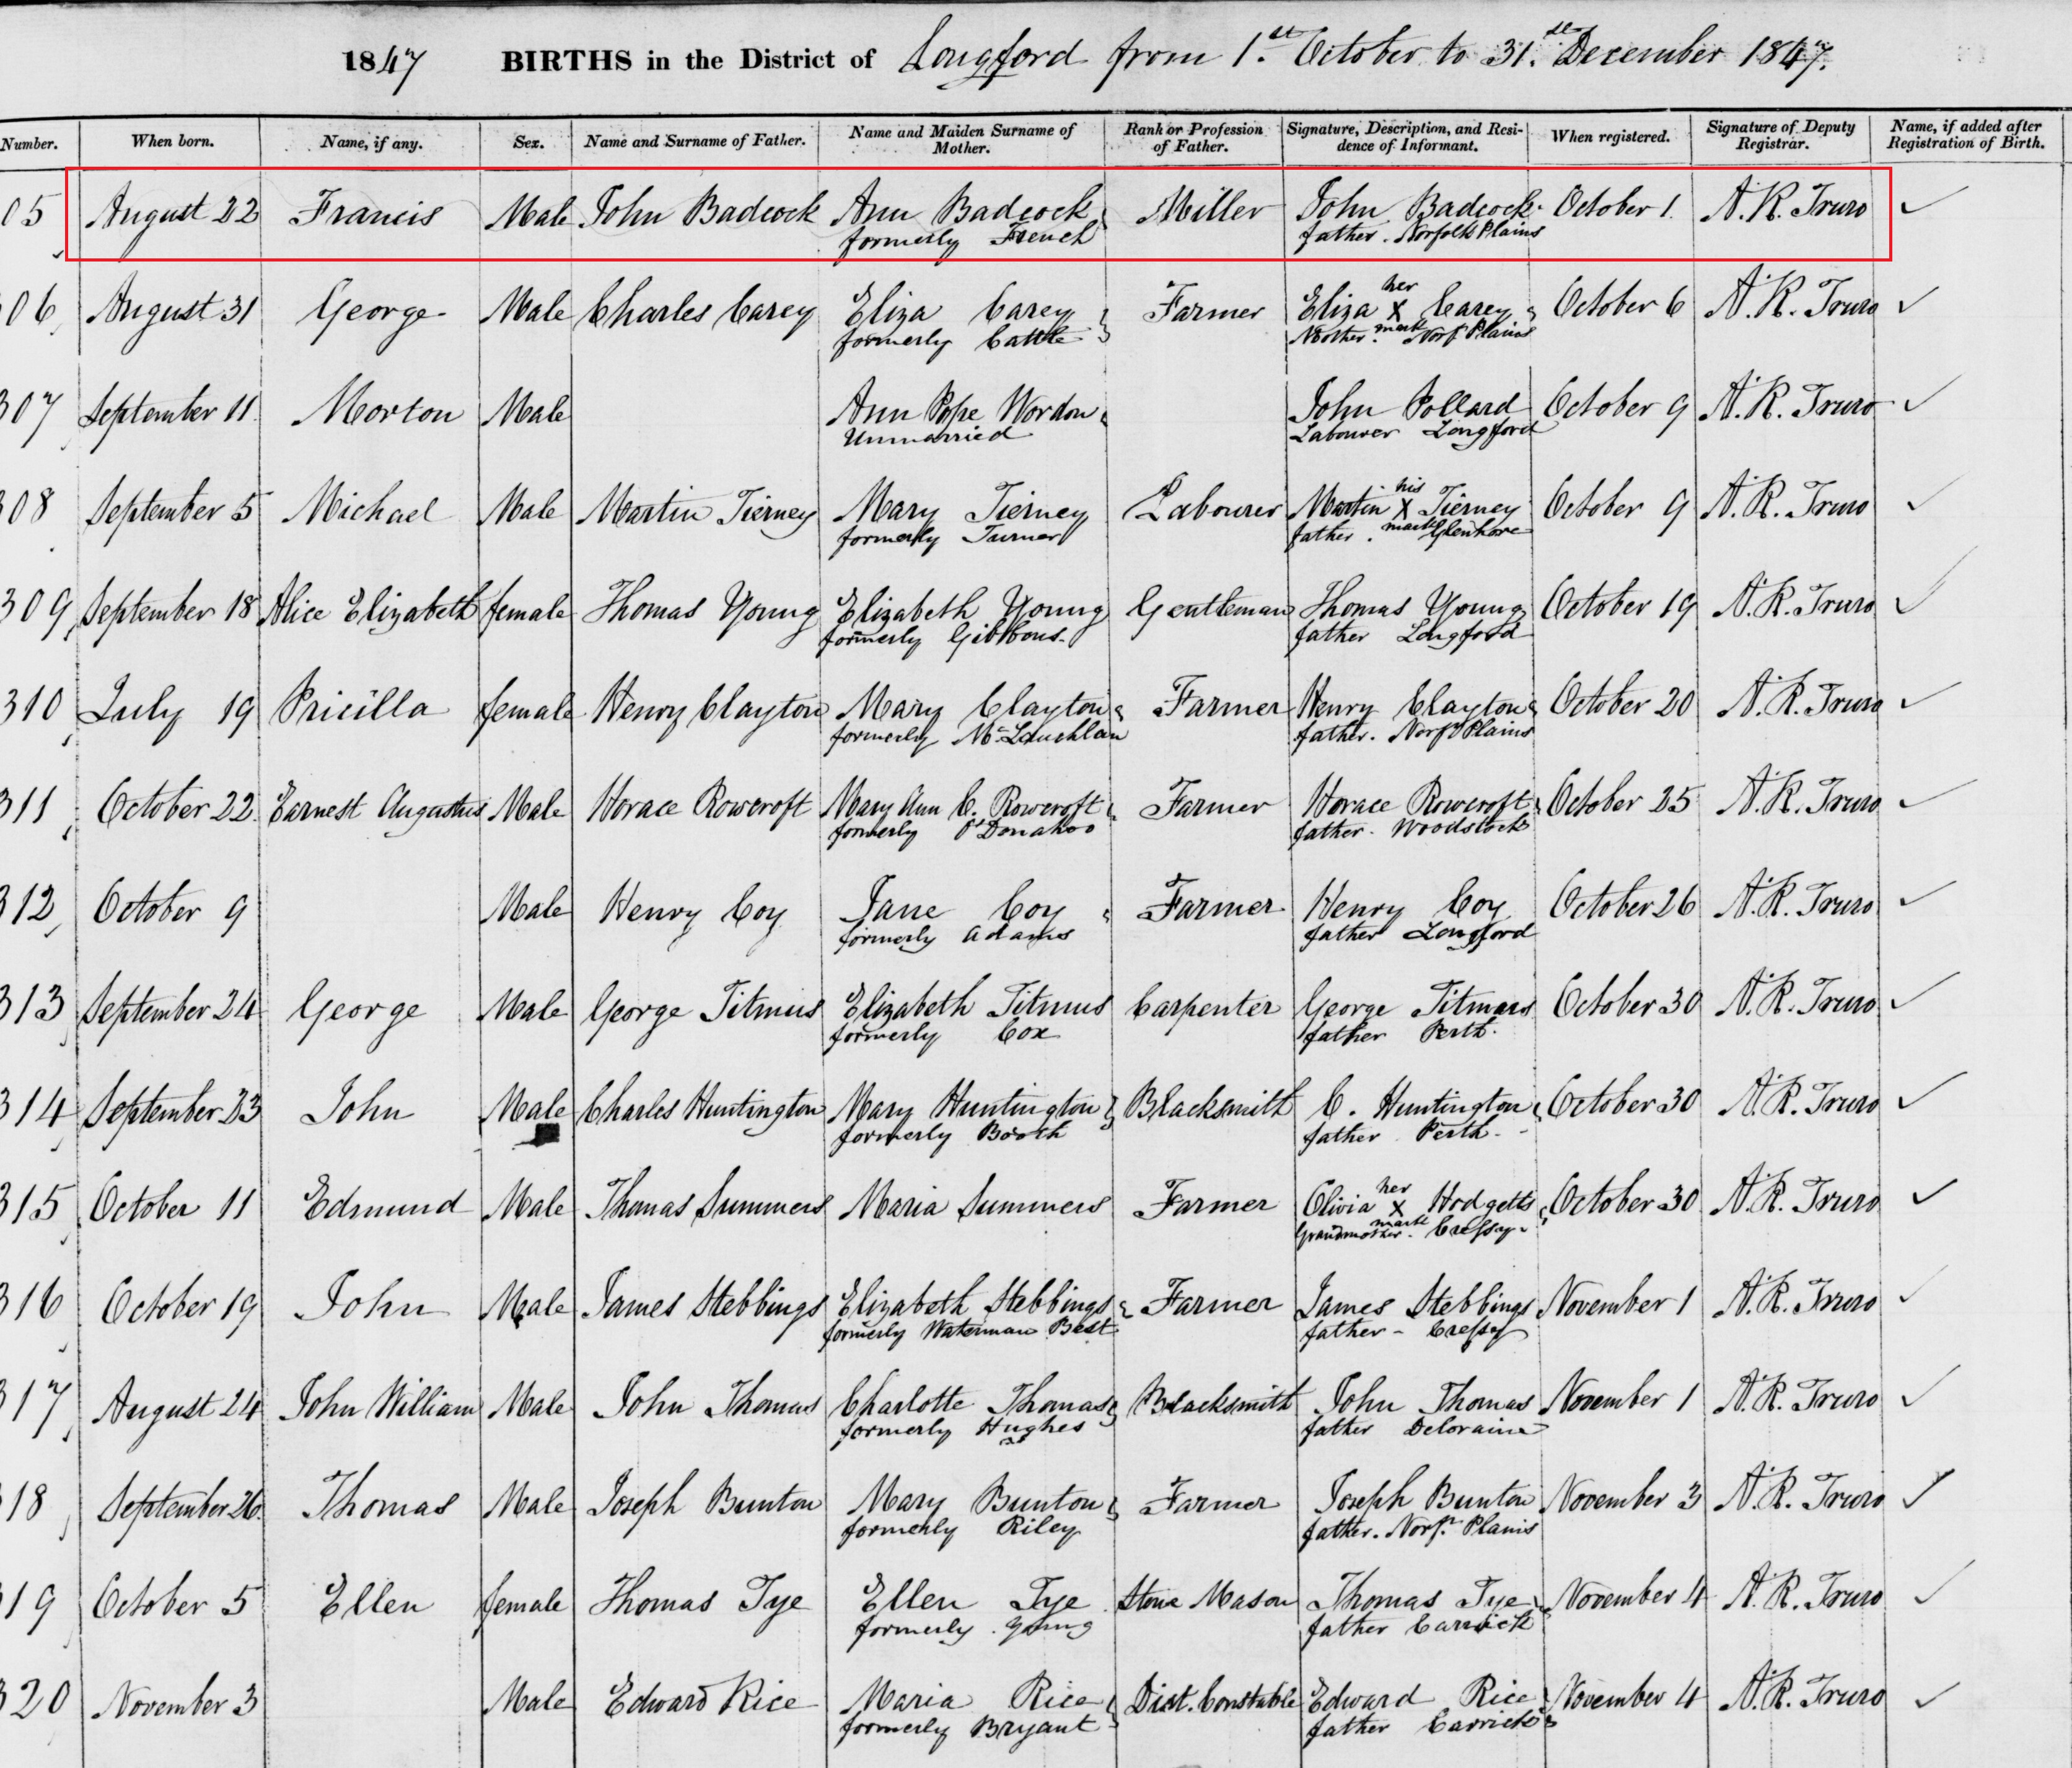 1847 BIRTHS in the District of Longford from 1.st October to 31.st December 1847.
Number. When born. Name, if any. Sex. Name and Surname of Father. Name and Maiden Surname of Mother. Rank or Profession of Father. Signature, Description, and Residence of Informant. When registered. Signature of Deputy Registrar. Name, if added after Registration of Birth.
05 August 22 Francis Male John Badcock Ann Badcock Miller John Badcock October 1. A. R. Truro ✓
formerly French father. Norfolk Plains
06 August 31 George Male Charles Carey Eliza Carey Farmer Eliza her X Carey October 6 A. R. Truro ✓
formerly Cattle Mother. mark Norf. Plains
307 September 11 Morton Male Ann Pope Wordon John Pollard October 9 A. R. Truro ✓
Unmarried Labourer Longford
308 September 5 Michael Male Martin Tierney Mary Tierney Labourer Martin his X Tierney October 9 A. R. Truro ✓
formerly Turner father. mark
309 September 18 Alice Elizabeth female Thomas Young Elizabeth Young Gentleman Thomas Young October 19 A. R. Truro ✓
formerly Gibbons father Longford
310 July 19 Pricilla female Henry Clayton Mary Clayton Farmer Henry Clayton October 20 A. R. Truro ✓
formerly McLauchlan father. Norf. Plains
311 October 22 Earnest Augustus Male Horace Rowcroft Mary Ann C. Rowcroft Farmer Horace Rowcroft October 25 A. R. Truro ✓
formerly O'Donahoo father. Woodstock
312 October 9 Male Henry Coy Jane Coy Farmer Henry Coy October 26 A. R. Truro ✓
formerly Adams father Longford
313 September 24 George Male George Titmus Elizabeth Titmus Carpenter George Titmus October 30 A. R. Truro ✓
formerly Cox father Perth.
314 September 23 John Male Charles Huntington Mary Huntington Blacksmith C. Huntington October 30 A. R. Truro ✓
formerly Booth father Perth.
315 October 11 Edmund Male Thomas Summers Maria Summers Farmer Olivia her X Hodgetts October 30 A. R. Truro ✓
Grandmother. mark Cressy
316 October 19 John Male James Stebbings Elizabeth Stebbings Farmer James Stebbings November 1 A. R. Truro ✓
formerly Waterman Best father - Cressy
317 August 24 John William Male John Thomas Charlotte Thomas Blacksmith John Thomas November 1 A. R. Truro ✓
formerly Hughes father Deloraine
318 September 26 Thomas Male Joseph Bunton Mary Bunton Farmer Joseph Bunton November 3 A. R. Truro ✓
formerly Riley father. Norf. Plains
19 October 5 Ellen female Thomas Tye Ellen Tye Stone Mason Thomas Tye November 4 A. R. Truro ✓
formerly Young father Carrick
320 November 3 Male Edward Rice Maria Rice Dist. Constable Edward Rice November 4 A. R. Truro ✓
formerly Bryant father Carrick